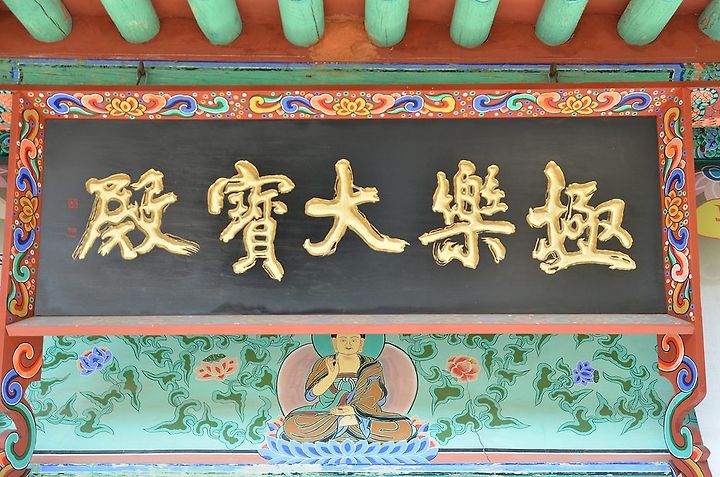 極樂大寶殿